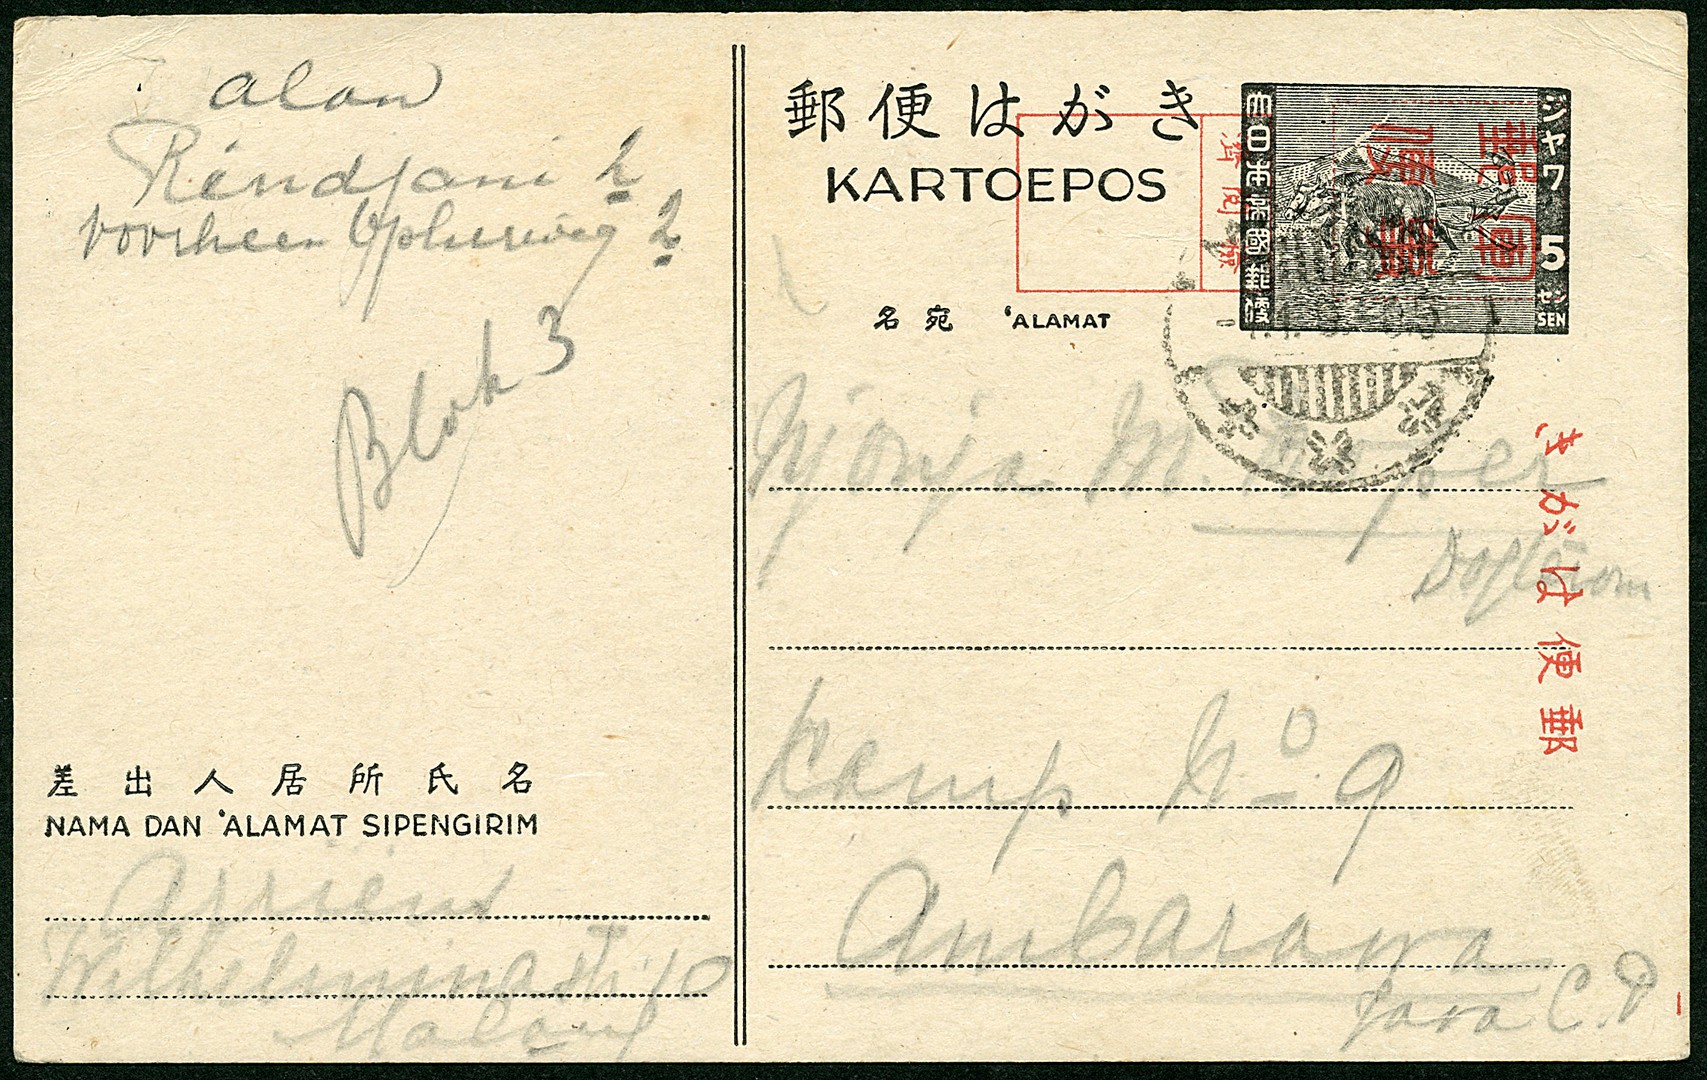 alon
Rindjani 2
voorheen Ophirweg 2
Blok 3
差出人居所氏名
NAMA DAN 'ALAMAT SIPENGIRIM
Wilhelmina str 10
Malang
郵便はがき
KARTOEPOS
大日本帝國郵便
ジャワ
5
セン
SEN
名宛 'ALAMAT
Njonja M.
Kamp No 9
Ambarawa
Java C.P
郵便はがき